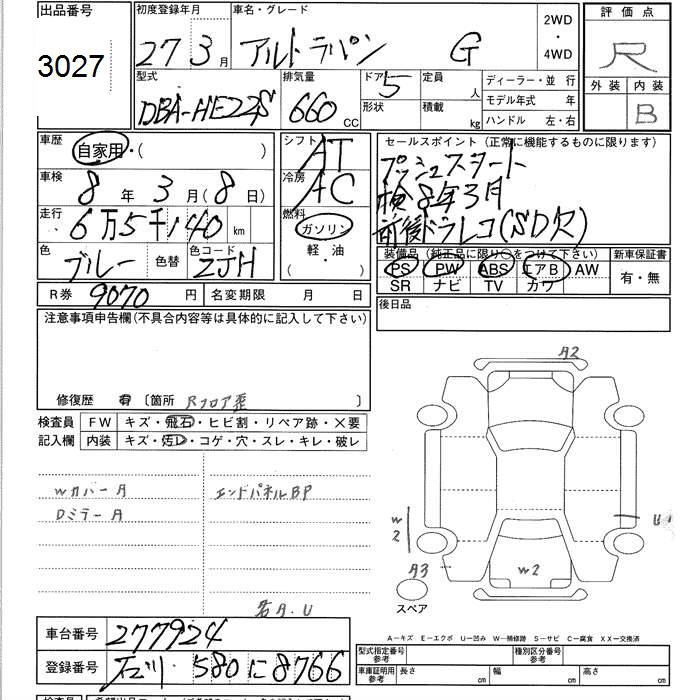 出品番号
3027
初度登録年月
27 3月
車名・グレード
アルトラパン G
2WD
・
4WD
評価点
R
外装 内装
B
型式
DBA-HE22S
排気量
660 CC
ドア 5
形状
定員 人
積載 kg
ディーラー・並行
モデル年式 年
ハンドル 左・右
車歴
自家用・( )
車検
8年 3月(8日)
走行
6万5千140 km
色 ブルー 色替 色コード ZJH
シフト AT
冷房 AC
燃料
ガソリン
軽・油
( )
セールスポイント(正常に機能するものに限ります)
プッシュスタート
検8年3月
前後ドラレコ(SD欠)
装備品(純正品に限り○をつけて下さい) 新車保証書
PS PW ABS エアB AW
SR ナビ TV カワ
有・無
R券 9070円 名変期限 月 日
後日品
注意事項申告欄(不具合内容等は具体的に記入して下さい)
修復歴 有 〔箇所 Rフロア歪 〕
検査員
記入欄
FW キズ・飛石・ヒビ割・リペア跡・×要
内装 キズ・汚レ・コゲ・穴・スレ・キレ・破レ
Wカバー A
Dミラー A
エンドパネルBP
各A.U
A2
W2
U
A3
W2
スペア
A-キズ E-エクボ U-凹み W-補修跡 S-サビ C-腐食 XX-交換済
車台番号 277924
登録番号 石川 580 に 8766
型式指定番号
参考
種別区分番号
参考
車庫証明用
参考
長さ cm 幅 cm 高さ cm